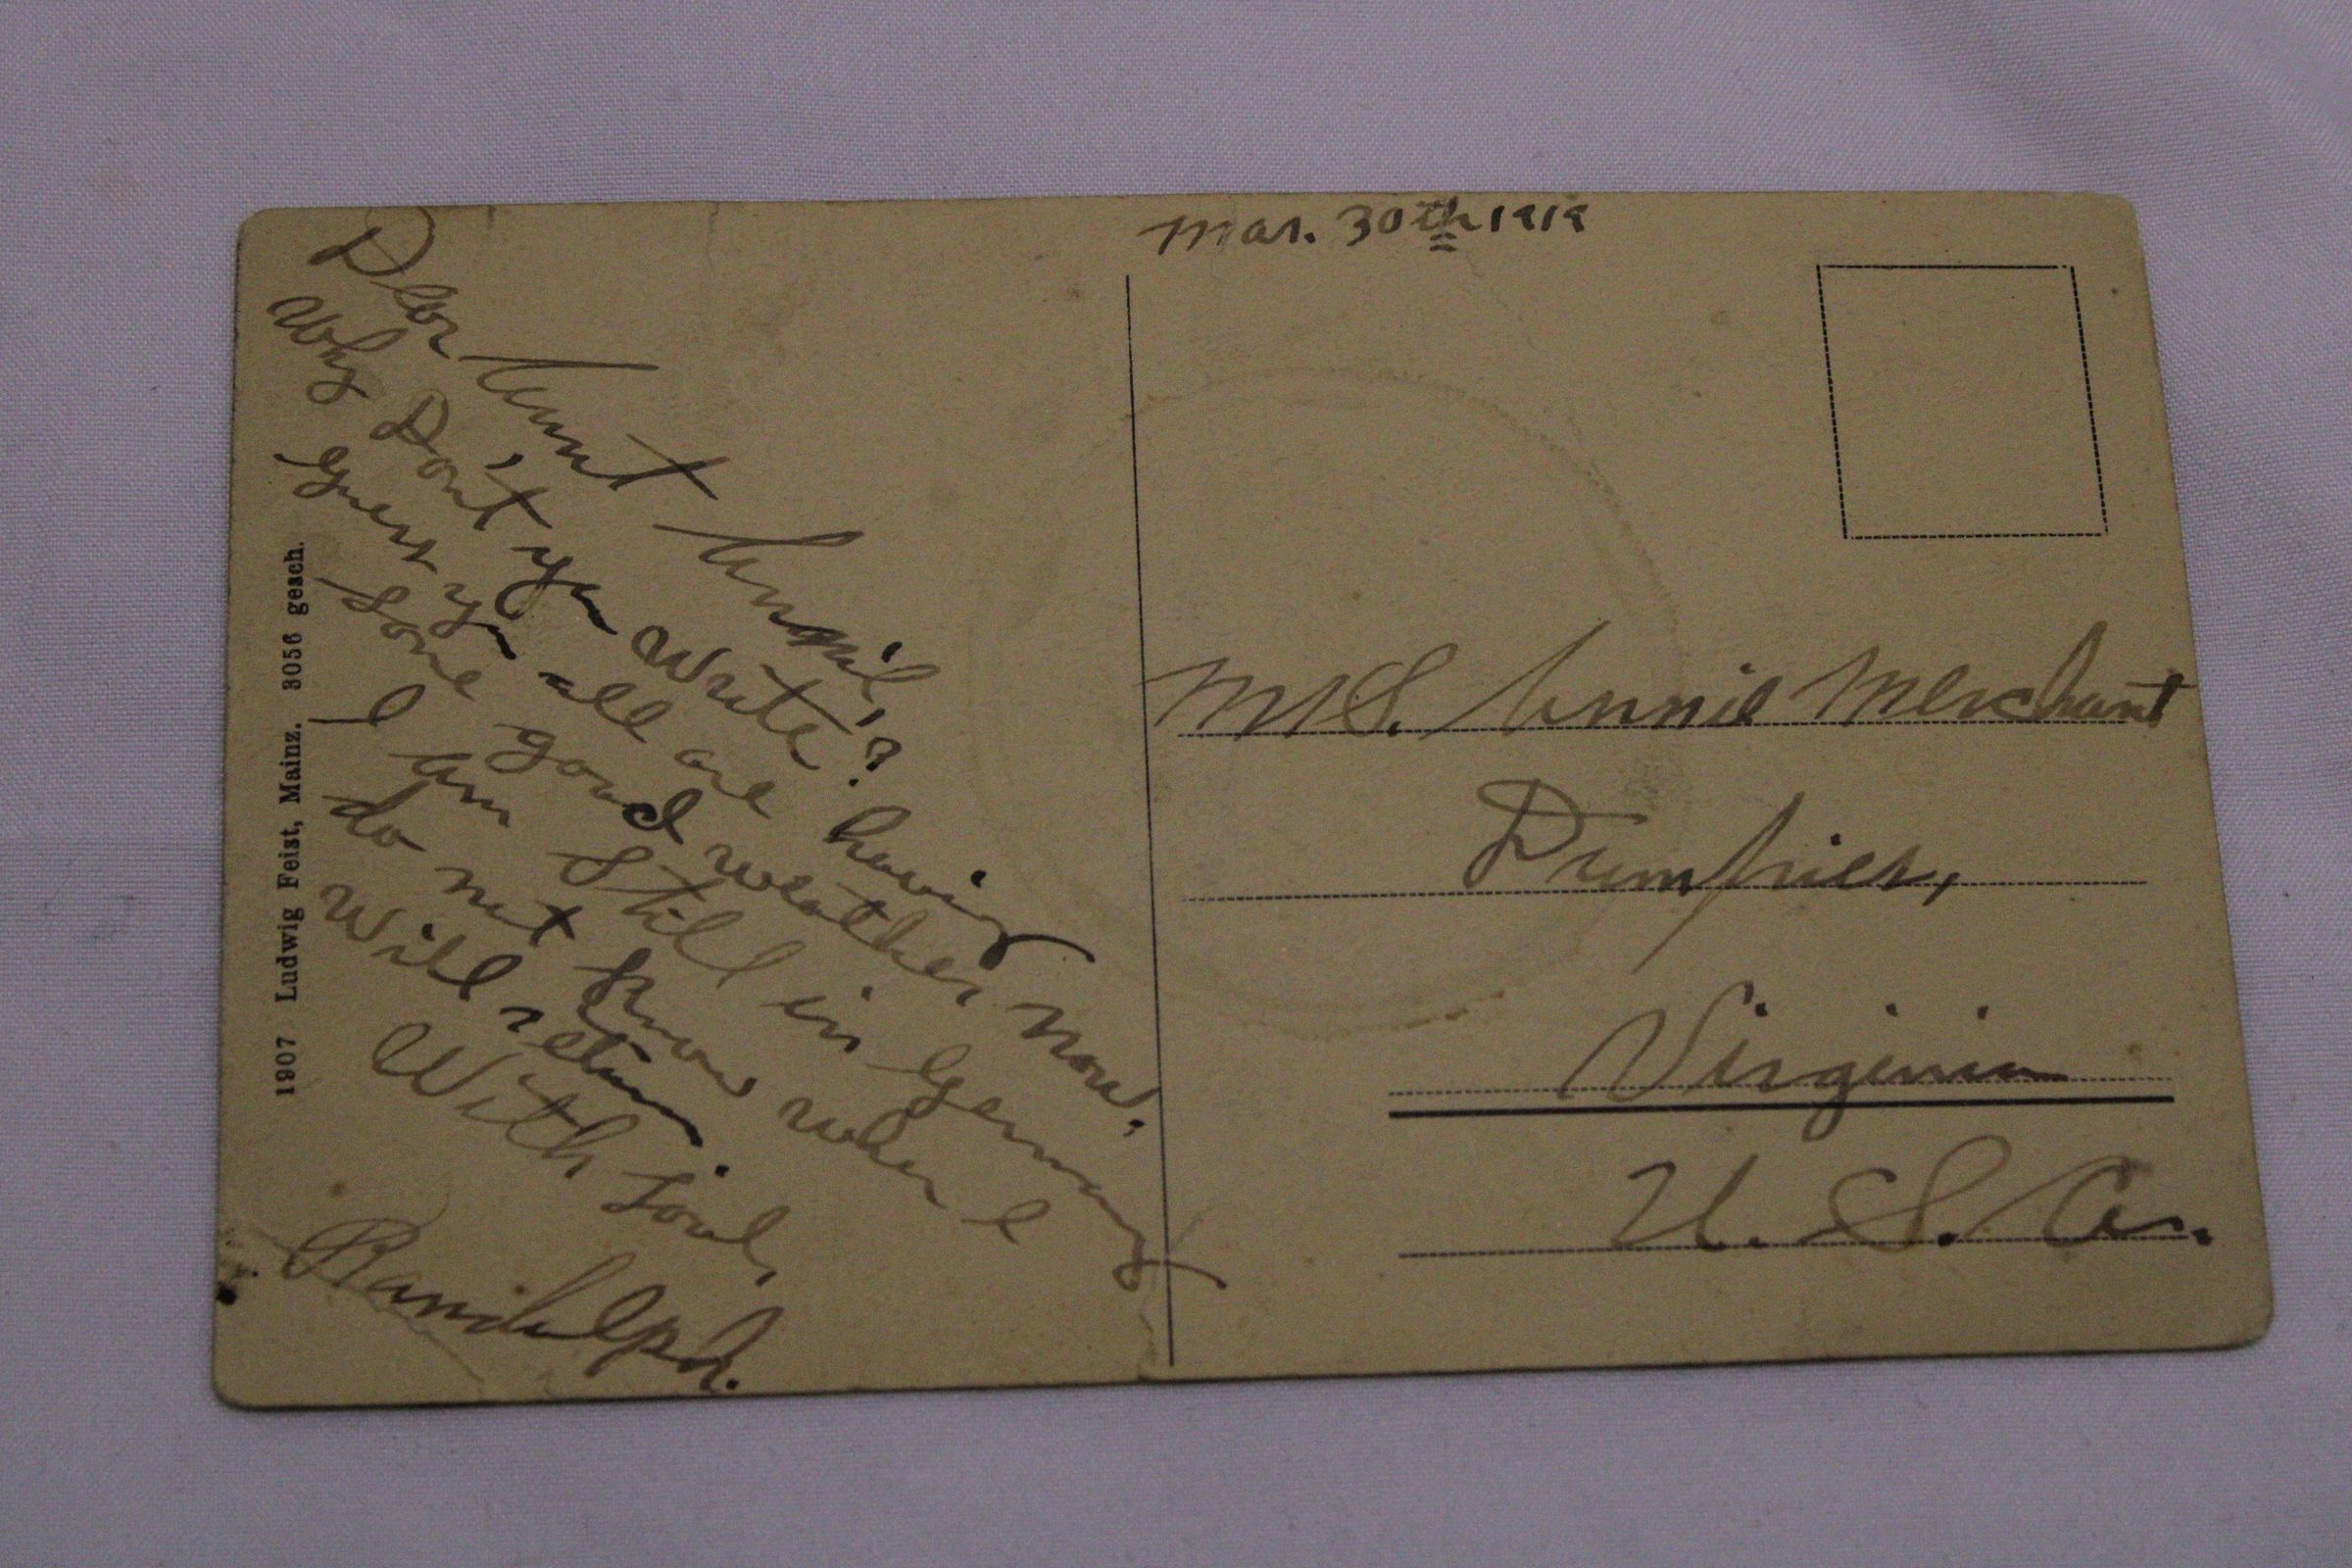 Mar. 30th 1919
Dear Aunt Annie,
Why Don't you write?
Guess you all are having
some good weather now.
I am still in Germany
do not know when I
will return.
With Love,
Randolph.
Mrs. Annie Merchant
Dumfries,
Virginia
U. S. A.
1907 Ludwig Feist, Mainz. 3056 gesch.